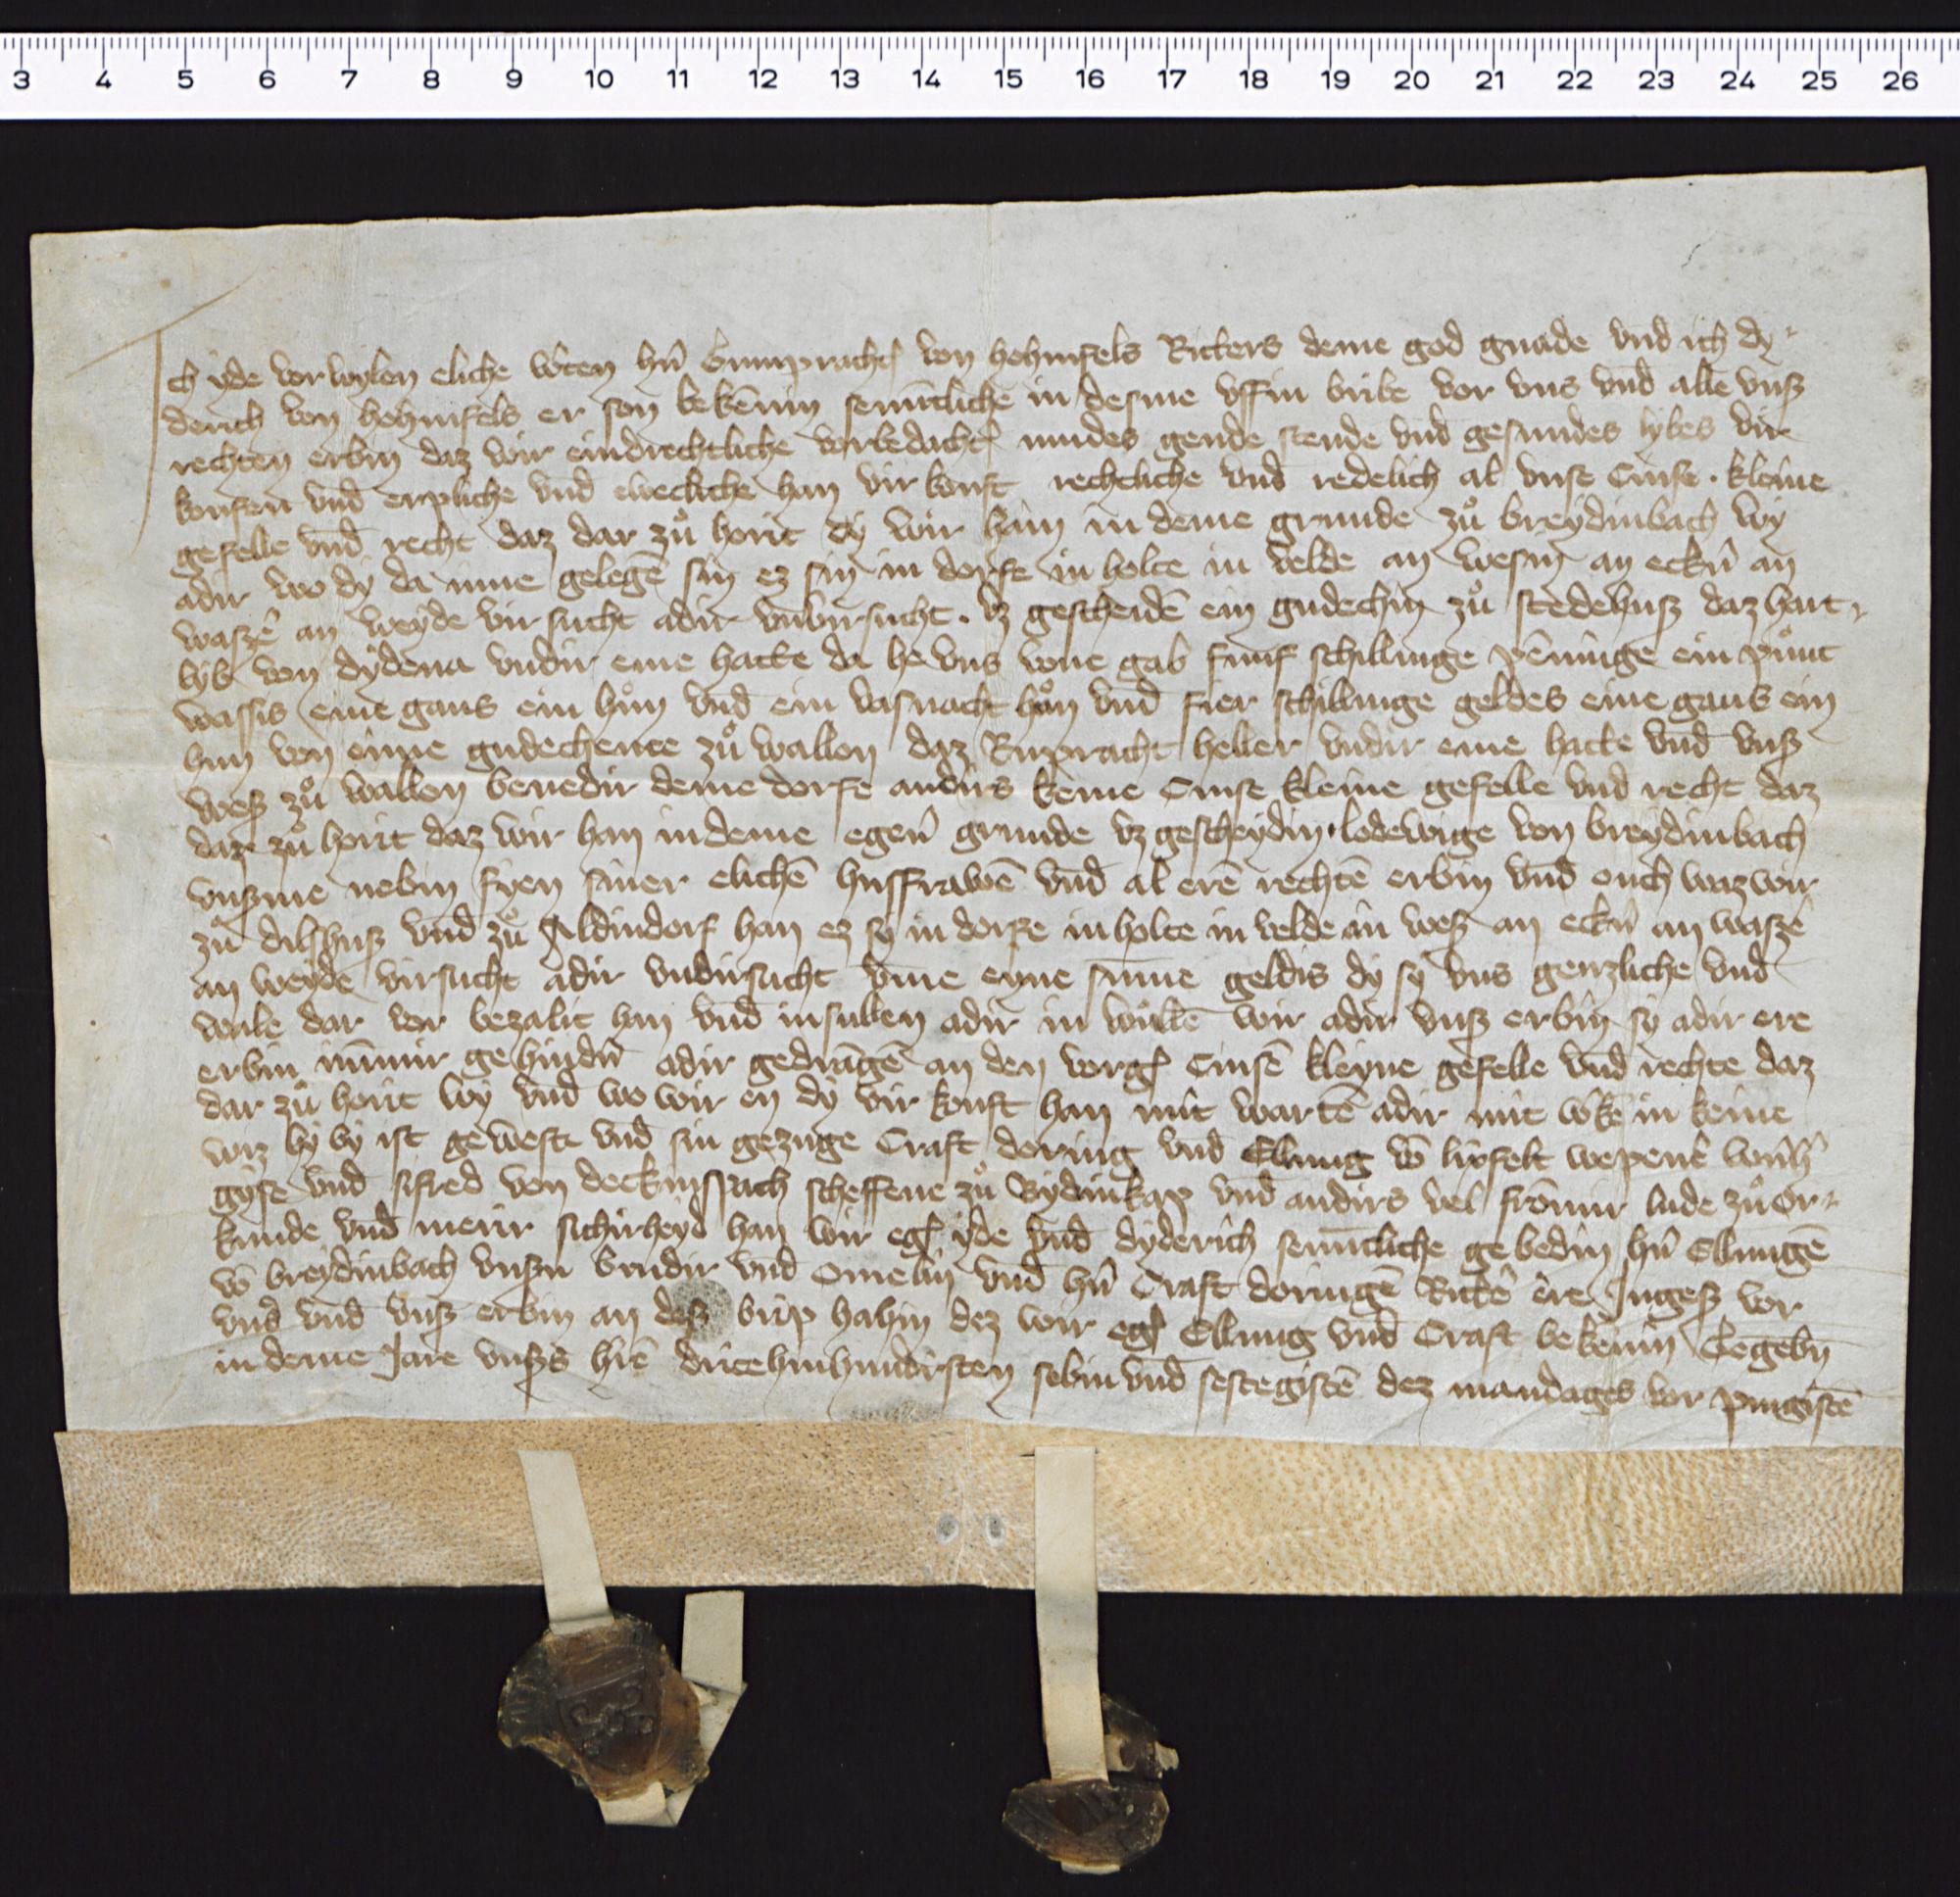 3 4 5 6 7 8 9 10 11 12 13 14 15 16 17 18 19 20 21 22 23 24 25 26
Ich yde vorwylen eliche wten hn̄ Gumprachcȝ von hohinfels Ritters deme god gnade vnd ich dy-
derich von hohinfels er son bekēnin semītliche in desme uffin brībe vor vns vnd alle vnß
rechten erbin daz wir eindrechtliche vorbedachtȝ mudes gende stende vnd gesundes lybes vir
koufen vnd erpliche vnd ewecliche han vir kouft rechtliche vnd redelich al vnse Cinse . kleine
gefelle vnd recht daz dar zů horit dy wir hain in deme grunde zů breydinbach wy
adir wo dy da inne gelegē sin ez sin in dorfe in holte in velde an wesin an eckn̄ an
waszē an weyde vir sucht adir vnvirsucht . vz gescheidē ein gudechin zů stedehuß daz hart-
lyb von dydena vndir eme hatte da he vns vone gab funf schillinge pēninge ein půnt
wassis eine gans ein hůn vnd ein vasnacht hůn vnd fier schillinge geldes eine gans ein
hun von eime gudechente zů wallon daz Ruppracht heller vndir eme hatte vnd vnß
weß zů wallon benedir deme dorfe andirs keine Cinse kleine gefelle vnd recht daz
dar zů horit daz wir han in deme egen̄ grunde vz gescheydin . lodewige von breydinbach
vnßme nebin fyen siner elichē husfrawē vnd al erē rechtē erbin vnd ouch waz wir
zů dilshuß vnd zů Aldindorf han ez sy in dorfe in holte in velde in weß an eckn̄ an waszē
an weyde virsucht adir vndirsucht vme eyne sūme geldis dy sy vns genzliche vnd
wale dar vor bezalit han vnd insullen adir in wullē wir adir vnß erbin sy adir ere
erbin nūmir gehindn̄ adir gedrāgē an den vorgȝ Cinsē kleyne gefelle vnd rechte daz
dar zů horit wy vnd wo wir en dy vir kouft han mit wartē adir mit wkē in keine
wiz hy by ist gewest vnd sin gezuge Craft doring vnd Ellung vō lixfelt wepenē
gyse vnd sifred von deckinspach scheffene zů Bydinkap vnd andirs vel frōmir lude zů or-
kunde vnd merir sichirheyd han wir egȝ yde vnd dyderich semītliche gebedin hn̄ Ellungē
vō breydinbach vnßn brudir vnd omelin vnd hn̄ Craft doringē Rittē ere Ingeß vor
vnd vnd vnß erbin an deß brip hahin dez wir egȝ Ellung vnd Craft bekēnin Gegebn̄
in deme Jare vnßs hrē dritehinhundirsten sebin vnd sestegistē dez mandages vor pingistē